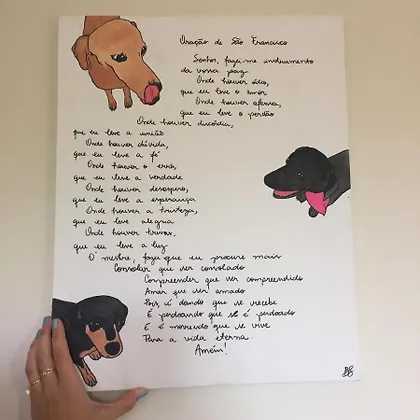 Oração de São Francisco
Senhor, faça-me instrumento
da vossa paz
Onde houver ódio,
que eu leve o amor
Onde houver ofensa,
que eu leve o perdão
Onde houver discórdia,
que eu leve a união
Onde houver dúvida,
que eu leve a fé
Onde houver o erro,
que eu leve a verdade
Onde houver desespero,
que eu leve a esperança
Onde houver a tristeza,
que eu leve alegria
Onde houver trevas,
que eu leve a luz
O mestre, faça que eu procure mais
Consolar que ser consolado
Compreender que ser compreendido
Amar que ser amado
Pois, é dando que se recebe
É perdoando que se é perdoado
E é morrendo que se vive
Para a vida eterna.
Amém!